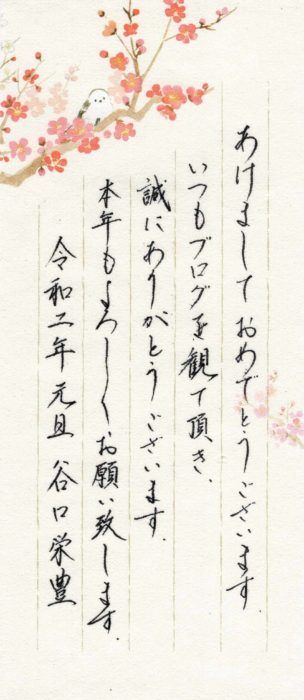 あけまして おめでとうございます
いつもブログを観て頂き、
誠にありがとうございます.
本年もよろしくお願い致します.
令和二年 元旦 谷口栄豊